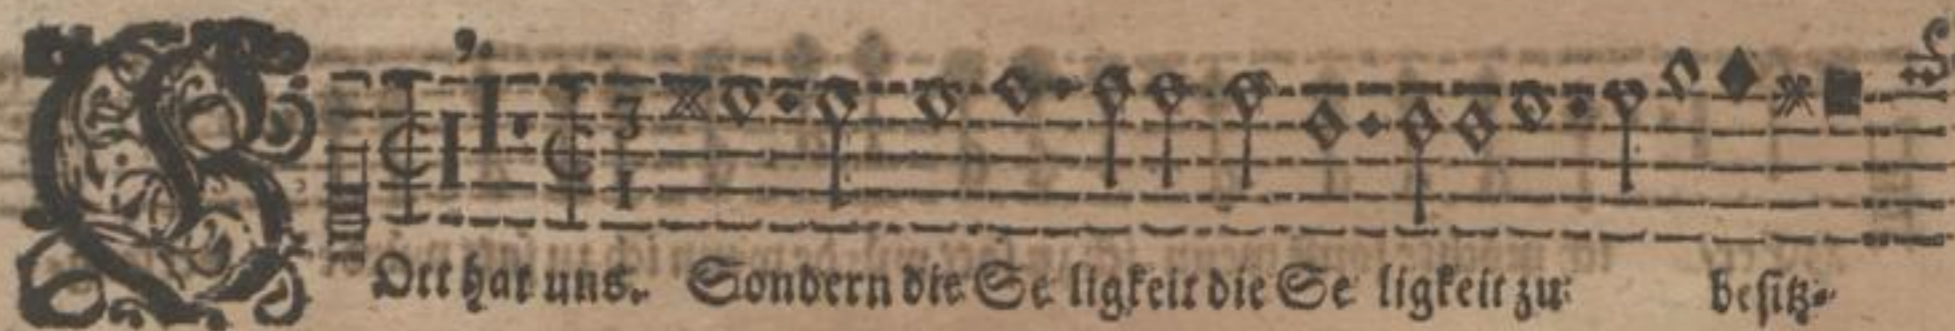 9.
GOtt hat uns. Sondern die Se ligkeit die Se ligkeit zu besitz-